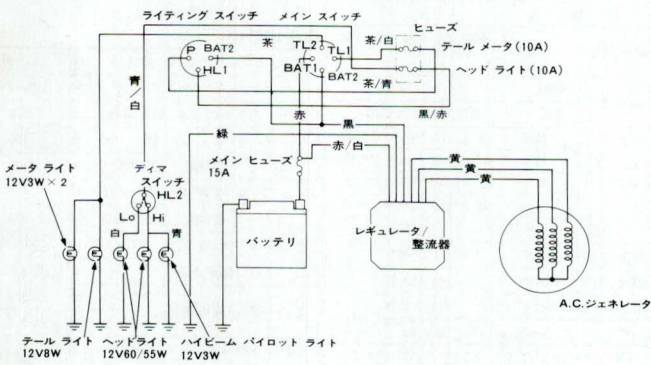 ライティング スイッチ
メイン スイッチ
ヒューズ
茶
TL2
TL1
茶/白
テール メータ(10A)
P
BAT2
HL1
BAT1
BAT2
茶/青
ヘッド ライト(10A)
青/白
赤
黒/赤
黒
緑
赤/白
メイン ヒューズ
15A
黄
黄
黄
メータ ライト
12V3W×2
ディマ
スイッチ
HL2
Lo
Hi
白
青
バッテリ
レギュレータ/
整流器
A.C.ジェネレータ
テール ライト
12V8W
ヘッドライト
12V60/55W
ハイビーム パイロット ライト
12V3W